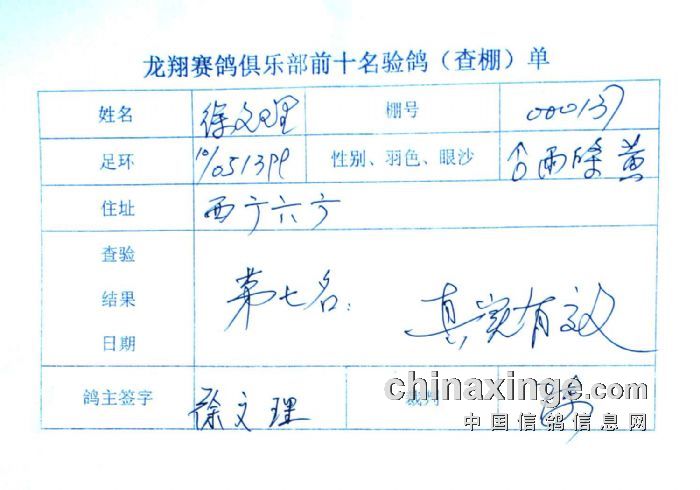 龙翔赛鸽俱乐部前十名验鸽（查棚）单
姓名 徐文理 棚号 000137
足环 10/051399 性别、羽色、眼沙 雨條 黄
住址
查验
结果
日期
第七名： 真实有效
鸽主签字 徐文理 裁判
chinaxinge.com
中国信鸽信息网